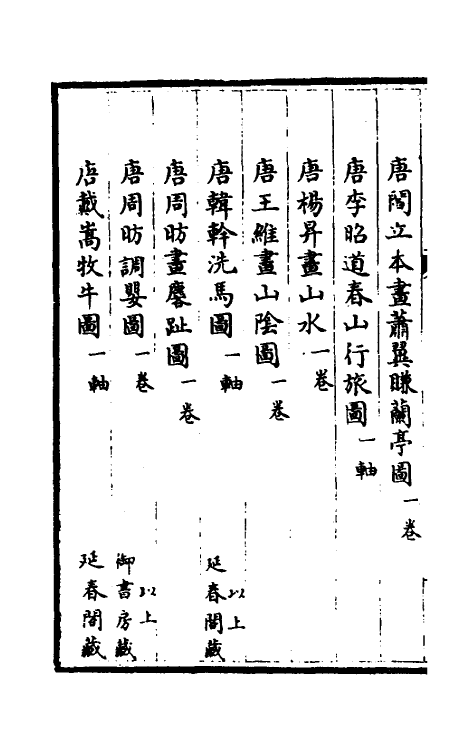 唐閻立本畫蕭翼賺蘭亭圖一卷
唐李昭道春山行旅圖一軸
唐楊昇畫山水一卷
唐王維畫山陰圖一卷
唐韓幹洗馬圖一軸 以上延春閣藏
唐周昉畫麐趾圖一卷
唐周昉調嬰圖一卷 以上御書房藏
唐戴嵩牧牛圖一軸 延春閣藏